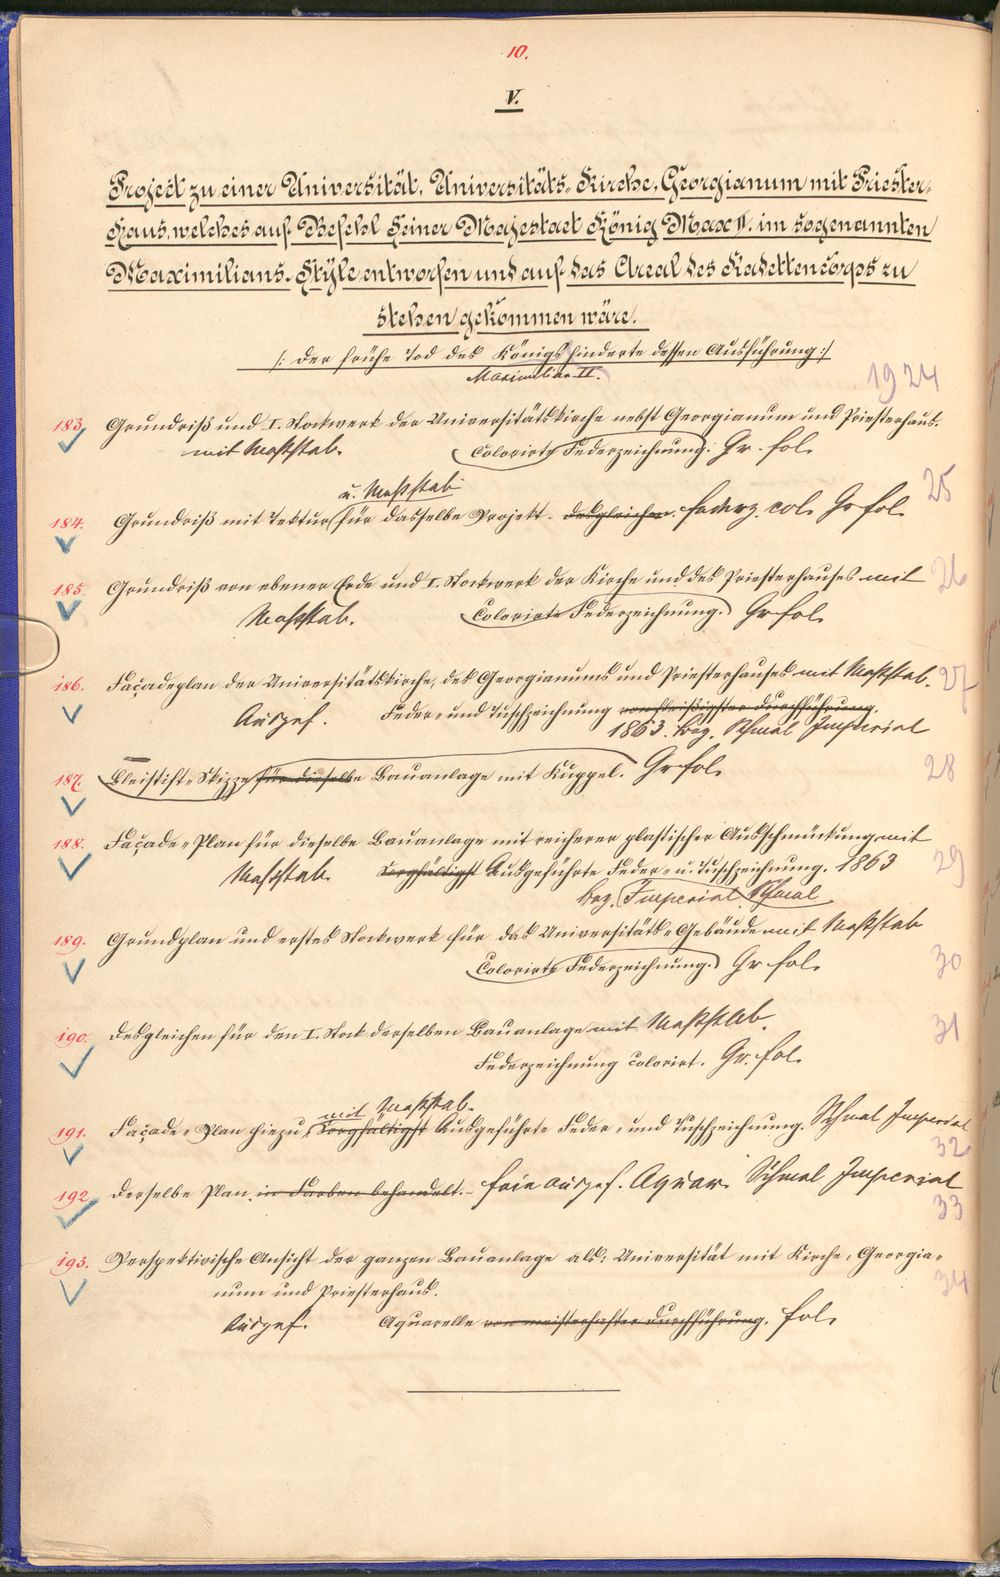 10.
V.
Project zu einer Universität, Universitäts-Kirche, Georgianum mit Priester-
Haus, welches auf Befehl Seiner Majestaet König Max II. im sogenannten
Maximilians-Style entworfen und auf das Areal des Kadettencorps zu
stehen gekommen wäre.
/: Der frühe Tod des Königs hinderte dessen Ausführung :/
Maximilian II.
1924
183. Grundriß und I. Stockwerk der Universitätskirche nebst Georgianum und Priesterhaus.
mit Maßstab. Colorirte Federzeichnung. Gr. fol.
u. Maßstab
25
184. Grundriß mit Tektur für dasselbe Projekt. desgleichen. Federz. col. Gr fol.
185. Grundriß von ebener Erde und I. Stockwerk der Kirche und des Priesterhauses mit
26
Maßstab. Colorirte Federzeichnung. Gr fol.
186. Façadeplan der Universitätskirche, des Georgianums und Priesterhauses mit Maßstab.
27
Ausgef. Feder- und Tuschzeichnung von fleißigster Durchführung.
1863. bez. Schmal Imperial
187. Bleistift-Skizze für dieselbe Bauanlage mit Kuppel. Gr fol.
28
188. Façade-Plan für dieselbe Bauanlage mit reicherer plastischer Ausschmückung mit
29
Maßstab. Sorgfältigst Ausgeführte Feder- u. Tuschzeichnung. 1863
bez. Imperial Schmal
189. Grundplan und erstes Stockwerk für das Universitäts-Gebäude mit Maßstab
Colorirte Federzeichnung. Gr fol.
30
190. Desgleichen für den I. Stock derselben Bauanlage mit Maßstab.
31
Federzeichnung colorirt. Gr. fol.
mit Maßstab.
191. Façade-Plan hiezu, Sorgfältigst Ausgeführte Feder- und Tuschzeichnung. Schmal Imperial
32
192. Derselbe Plan in Farben behandelt. fein ausgef. Aquar. Schmal Imperial
33
193. Perspektivische Ansicht der ganzen Bauanlage als: Universität mit Kirche, Georgia-
34
num und Priesterhaus.
Ausgef. Aquarelle von meisterhafter Durchführung. fol.